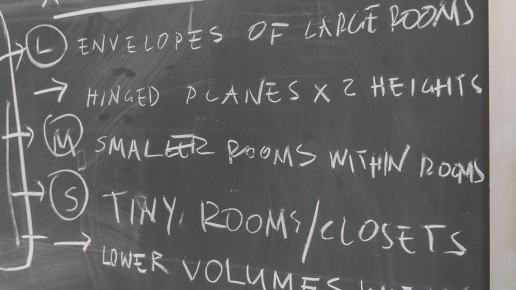 → Ⓛ ENVELOPES OF LARGE ROOMS
→ HINGED PLANES X 2 HEIGHTS
→ Ⓜ SMALLER ROOMS WITHIN ROOMS
→ Ⓢ TINY ROOMS/CLOSETS
→ LOWER VOLUMES